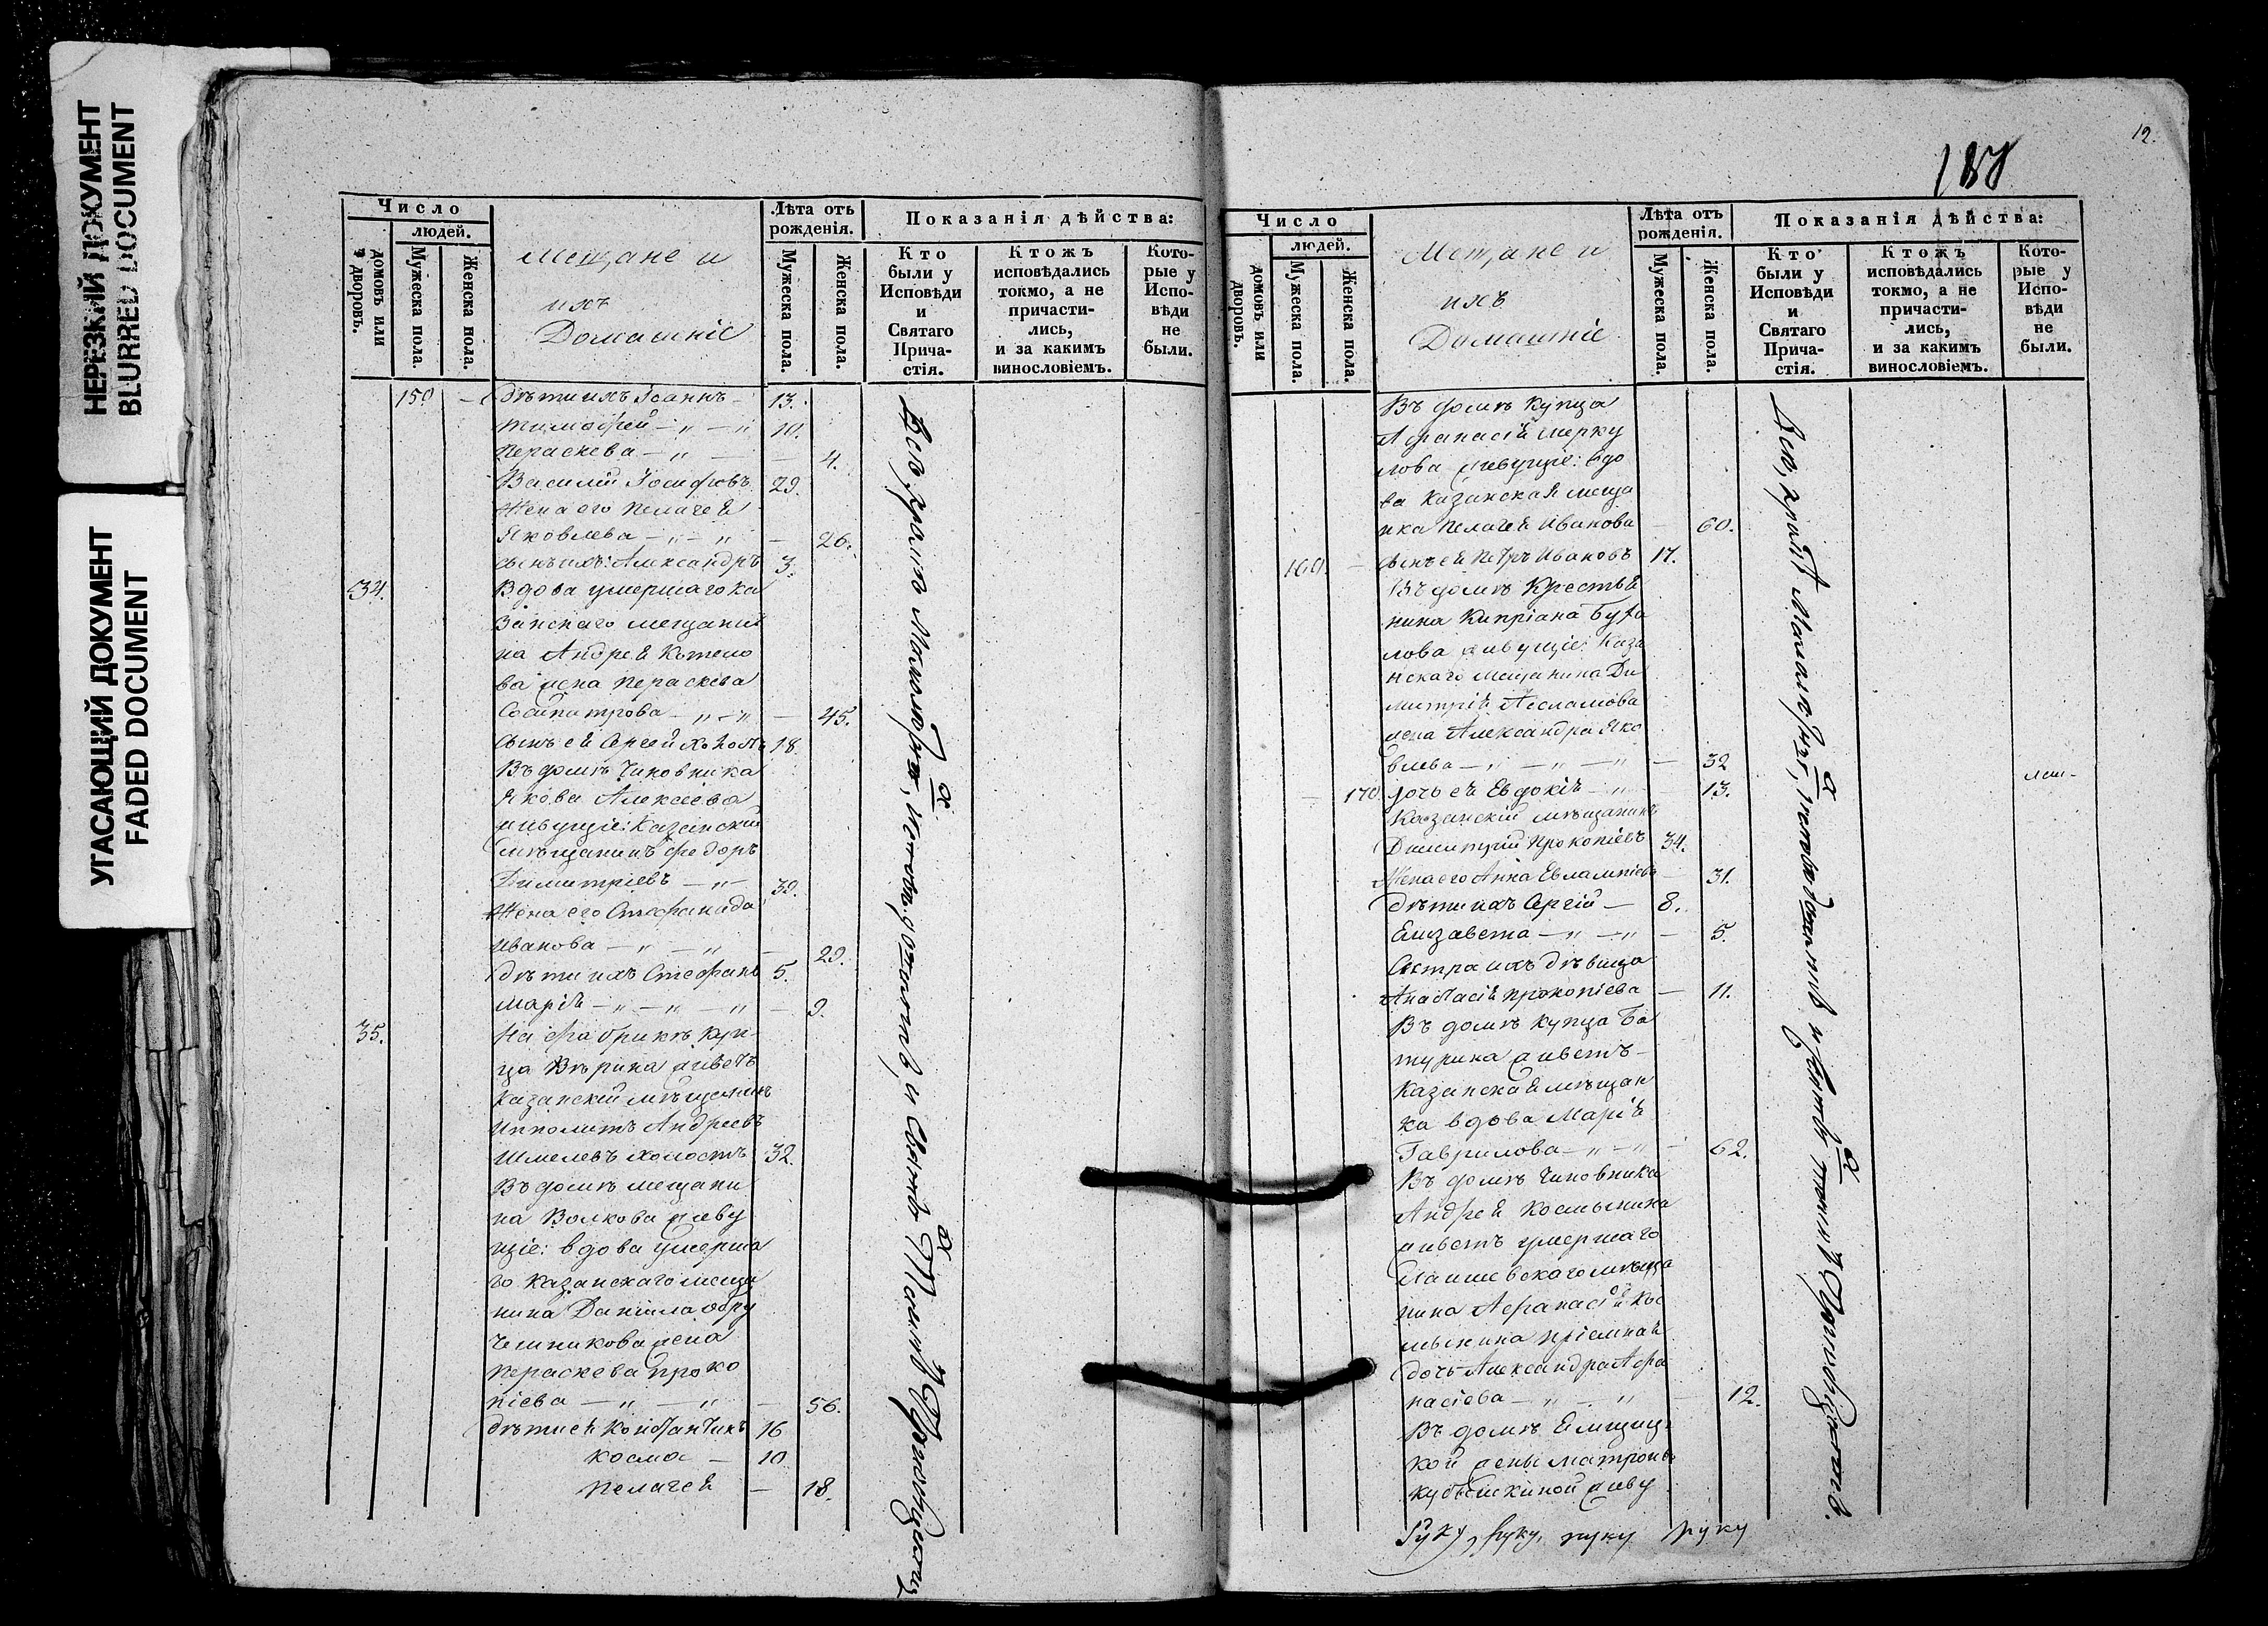 НЕРЕЗКИЙ ДОКУМЕНТ
BLURRED DOCUMENT
УГАСАЮЩИЙ ДОКУМЕНТ
FADED DOCUMENT
Число
людей.
домовъ или дворовъ.
Мужеска пола.
Женска пола.
Мещане и
ихъ
Домашніе
Лѣта отъ рожденія.
Мужеска пола.
Женска пола.
Показанія дѣйства:
Кто были у Исповѣди и Святаго Прича-стія.
Ктожъ исповѣдались токмо, а не причасти-лись, и за какимъ винословіемъ.
Кото-рые у Испо-вѣди не были.
150 дѣти ихъ Іоаннъ 13.
Тимофей — „ — „ 10.
Параскева — „ — 4.
Василій Іосифовъ 29.
Жена его Пелагея
Яковлева — „ — „ — 26.
сынъ ихъ: Александръ 3.
34. Вдова умершаго Ка
занскаго мещани
на Андрея
ва жена Параскева
Сосипатрова — „ — „ — 45.
сынъ ея Сергей холостъ 18.
Въ домѣ Чиновника
Якова Алексѣева
живущіе: Казанскій
мѣщанинъ Федоръ
Димитріевъ — „ — 39.
Жена его Стефанида
Иванова — „ — „ — 29.
дѣти ихъ Стефанъ 5.
Марія — „ — „ — „ — 9.
35. На фабрикѣ куп-
ца Вѣрина живетъ
Казанскій мѣщанинъ
Ипполитъ Андреевъ
Шмелевъ холостъ 32.
Въ домѣ мещани
на Волкова живу
щіе: вдова умерша
го Казанскаго меща
нина Даніила Обру
чешникова жена
Параскева Проко
піева — „ — „ — 56.
дѣти ея Константинъ 16
Косма — 10
Пелагея — 18.
12.
Число
людей.
домовъ или дворовъ.
Мужеска пола.
Женска пола.
Мещане и
ихъ
Домашніе
Лѣта отъ рожденія.
Мужеска пола.
Женска пола.
Показанія дѣйства:
Кто были у Исповѣди и Святаго Прича-стія.
Ктожъ исповѣдались токмо, а не причасти-лись, и за какимъ винословіемъ.
Кото-рые у Испо-вѣди не были.
Въ домѣ купца
Афанасія Мерку
лова живущіе: вдо
ва Казанская меща
нка Пелагея Иванова — 60.
160. — сынъ ея Петръ Ивановъ 17.
Въ домѣ Крестья
нина Кипріана
лова живущіе: Каза
нскаго мещанина Ди
митрія
жена Александра Яко
влева — „ — „ — „ — 32
— 170 дочь ея Евдокія — „ — 13.
Казанскій мѣщанинъ
Димитрій Прокопіевъ 34.
Жена его Анна Евлампіева — 31.
дѣти ихъ Сергій — 8.
Елизавета — „ — „ — 5.
Сестра ихъ дѣвица
Анастасія Прокопіева — 11.
Въ домѣ купца Ба
турина живетъ
Казанская мѣщан
ка вдова Марія
Гаврилова — „ — „ — 62.
Въ домѣ Чиновника
Андрея Космынина
живетъ умершаго
Лаишевскаго мѣща
нина Афанасія Кос
мынина пріемная
дочь Александра Афа
насіева — „ — „ 12.
Въ домѣ
кой жены Матроны
живу
руку, руку, руку руку